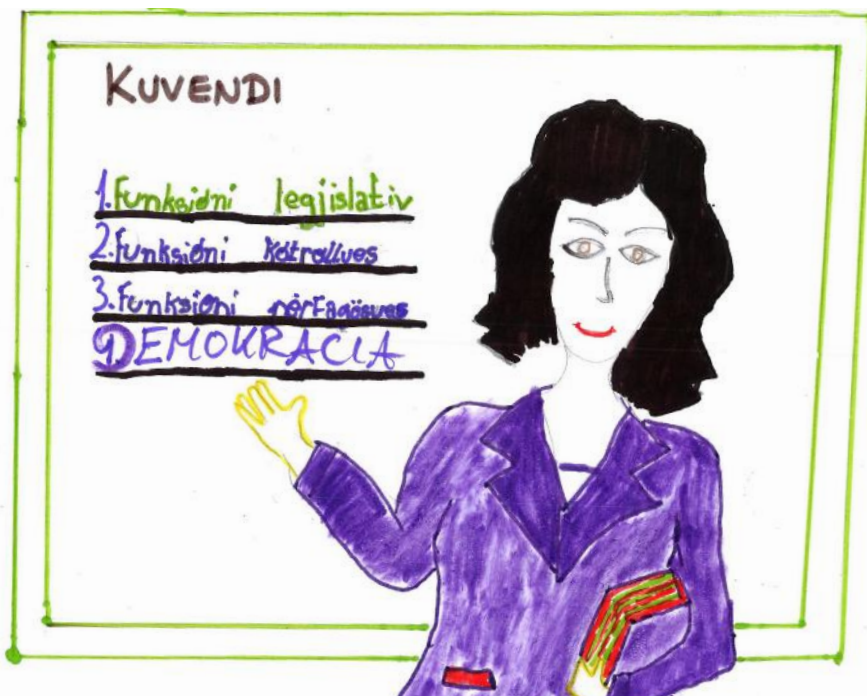 KUVENDI
1. Funksioni legjislativ
2. Funksioni Kotrollues
3. Funksioni përfaqësues
DEMOKRACIA